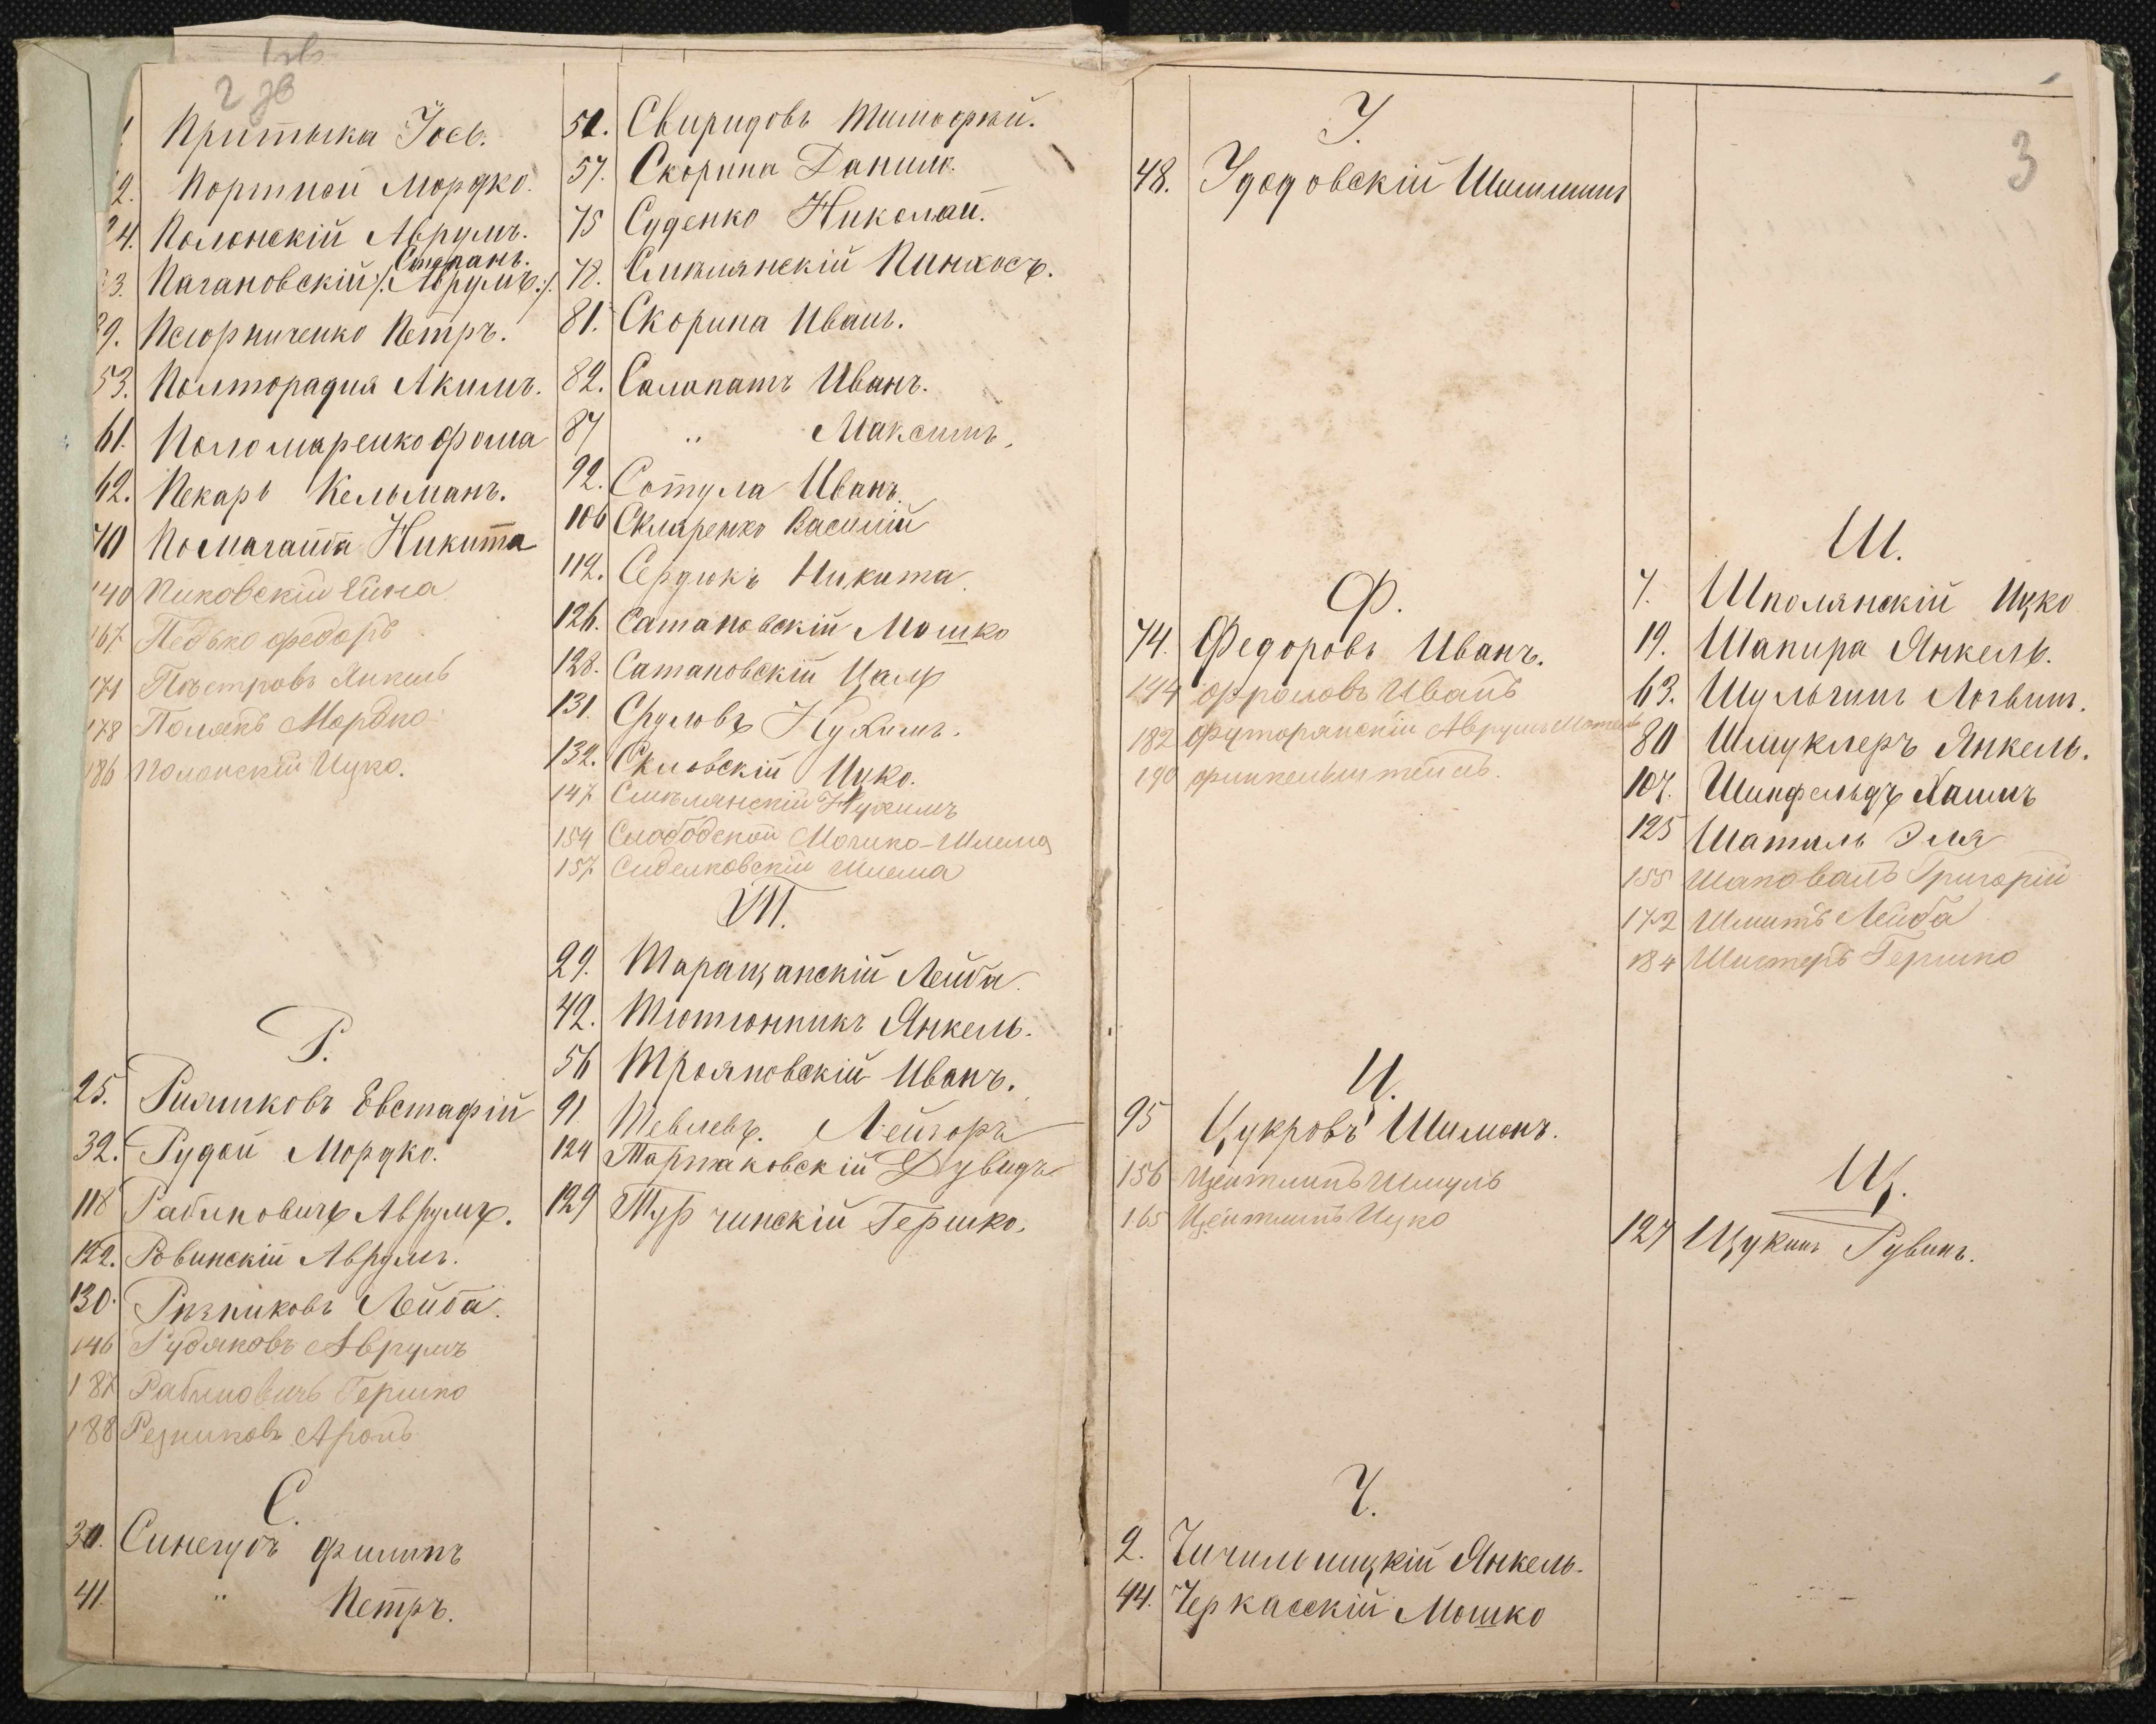 2 зв
Притыка Іосъ.
2. Портной Мордко.
24. Полонскій Аврумъ.
Степанъ.
33. Пагановскій /:Аврумъ:/.
39. Пегорниченко Петръ.
53. Полторадня Акимъ.
61. Поломаренко Фома
62. Пекарь Кельманъ.
70 Помагайба Никита
140 Пиковскій Ейна
167 Педько Федоръ
171 Пъстровъ Янкель
178 Полякъ Мордко
186 Полонскій Ицко.
Р.
25. Ризниковъ Евстафій
32. Рудой Мордко.
118 Рабиновичъ Аврумъ.
122. Ровинскій Аврумъ.
130. Рѣзниковъ Лейба.
146 Рудяковъ Аврумъ
187 Рабиновичъ Гершко
188 Резниковъ Аронъ
С.
30. Синегубъ Филипъ
41. " Петръ.
51. Свиридовъ Тимофѣй.
57. Скорина Данило.
75 Суденко Николай.
78. Смѣлянскій Пинхосъ.
81. Скорина Иванъ.
82. Солопатъ Иванъ.
87 " Максимъ.
92. Сотула Иванъ.
106 Скляренко Василій
112. Сердюкъ Никита.
126. Сатановскій Мошко
128. Сатановскій Цаль
131. Сруловъ Нухимъ.
132. Скловскій Ицко.
147 Смѣлянскій Нухимъ
154 Слободской Мошко-Шлема
157 Сиделковскій Шлема
Т.
29. Таращанскій Лейба.
42. Тютюнникъ Янкель.
56 Трояновскій Иванъ.
91 Тевлевъ. Лейзоръ
124 Тартаковскій Дувидъ
129 Турчинскій Гершко.
3
У.
48. Удодовскій Шимшинъ
Ф.
74. Федоровъ Иванъ.
144 Фроловъ Иванъ
182 Футорянскій Аврумъ Мотель
190 Финкельштейнъ.
Ц.
95 Цукровъ Шимонъ.
156 Цейтлинъ Шмуль
165 Цейтлинъ Ицко
Ч.
2. Чичильницкій Янкель.
44. Черкасскій Мошко
Ш.
7. Шполянскій Ицко
19. Шапира Янкель.
63. Шульгинъ Логвинъ.
80 Шмуклеръ Янкель.
107. Шинфельдъ Хаимъ
125 Шаталь Эля
155 Шаповалъ Григорій
172 Шмитъ Лейба
184 Шистеръ Гершко
Щ.
127 Щукинъ Рувинъ.